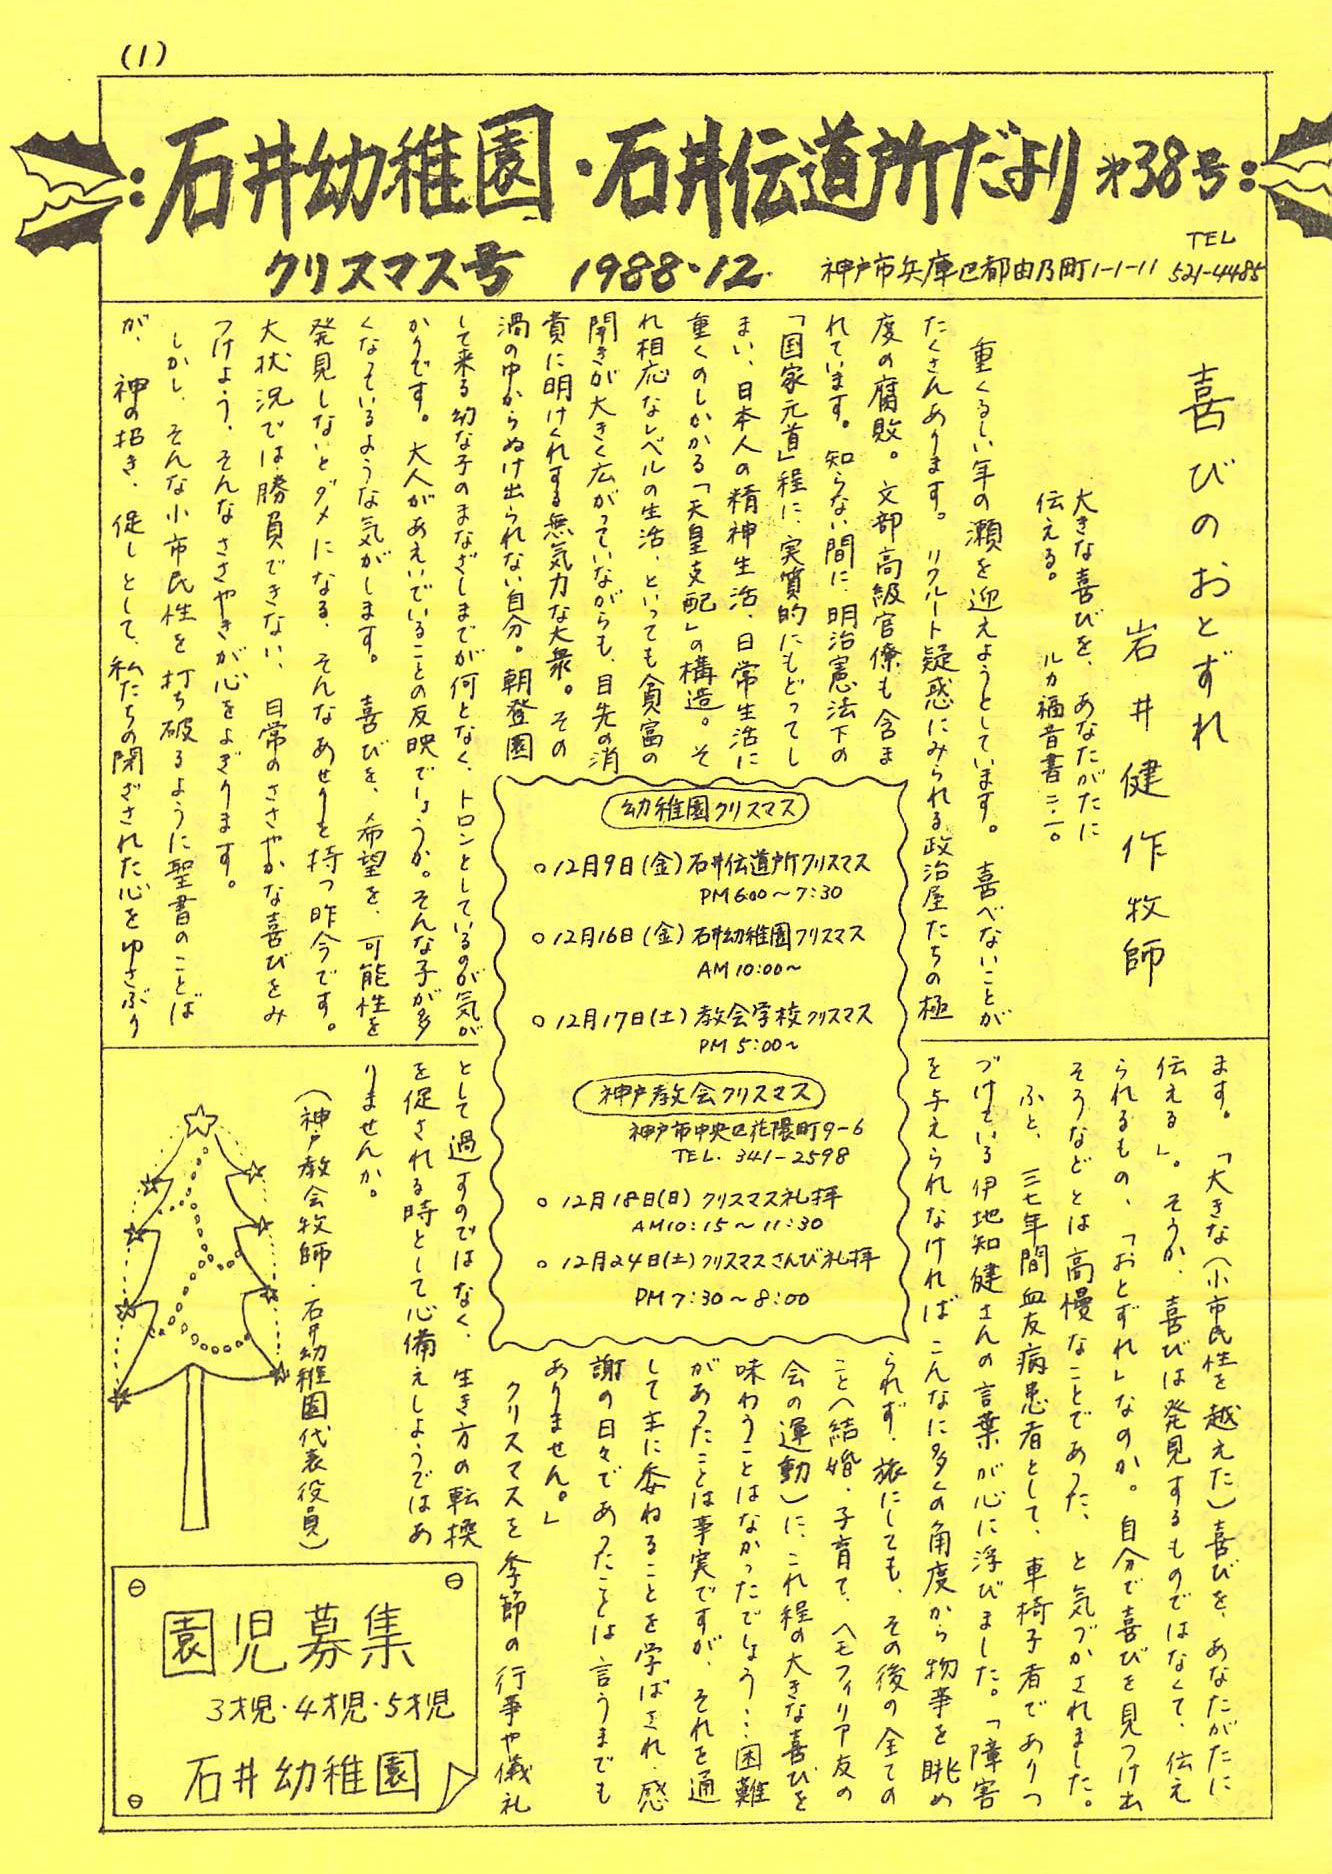 (1)
石井幼稚園・石井伝道所だより 才38号
クリスマス号 1988・12. 神戸市兵庫区都由乃町1-1-11 TEL 521-4485
喜びのおとずれ
岩井健作牧師
大きな喜びを、あなたがたに
伝える。 ルカ福音書二・一〇
重くるしい年の瀬を迎えようとしています。喜べないことが
たくさんあります。リクルート疑惑にみられる政治屋たちの極
度の腐敗。文部高級官僚も含ま
れています。知らない間に、明治憲法下の
「国家元首」程に、実質的にもどってし
まい、日本人の精神生活、日常生活に
重くのしかかる「天皇支配」の構造。そ
れ相応なレベルの生活、といっても貧富の
開きが大きく広がっていながらも、目先の消
費に明けくれする無気力な大衆。その
渦の中からぬけ出られない自分。朝登園
して来る幼な子のまなざしまでが何となく、トロンとしているのが気が
かりです。大人があえいでいることの反映でしょうか。そんな子が多
くなっているような気がします。喜びを、希望を、可能性を
発見しないとダメになる、そんなあせりを持つ昨今です。
大状況では勝負できない、日常のささやかな喜びをみ
つけよう、そんなささやきが心をよぎります。
しかし、そんな小市民性を打ち破るように聖書のことば
が、神の招き、促しとして、私たちの閉ざされた心をゆさぶり
ます。「大きな(小市民性を越えた)喜びを、あなたがたに
伝える」。そうか、喜びは発見するものではなくて、伝え
られるもの、「おとずれ」なのか。自分で喜びを見つけ出
そうなどとは高慢なことであった、と気づかされました。
ふと、三七年間血友病患者として、車椅子者でありつ
づけている伊地知健さんの言葉が心に浮びました。「障害
を与えられなければこんなに多くの角度から物事を眺め
られず、旅にしても、その後の全ての
こと(結婚、子育て、ヘモフィリア友の
会の運動)に、これ程の大きな喜びを
味わうことはなかったでしょう…困難
があったことは事実ですが、それを通
して主に委ねることを学ばされ、感
謝の日々であったことは言うまでも
ありません。」
クリスマスを季節の行事や儀礼
として過すのではなく、生き方の転換
を促される時として心備えしようではあ
りませんか。
(神戸教会牧師・石井幼稚園代表役員)
幼稚園クリスマス
○12月9日(金)石井伝道所クリスマス
PM6:00〜7:30
○12月16日(金)石井幼稚園クリスマス
AM10:00〜
○12月17日(土)教会学校クリスマス
PM 5:00〜
神戸教会クリスマス
神戸市中央区花隈町9-6
TEL. 341-2598
○12月18日(日)クリスマス礼拝
AM10:15〜11:30
○12月24日(土)クリスマスさんび礼拝
PM7:30〜8:00
園児募集
3才児・4才児・5才児
石井幼稚園